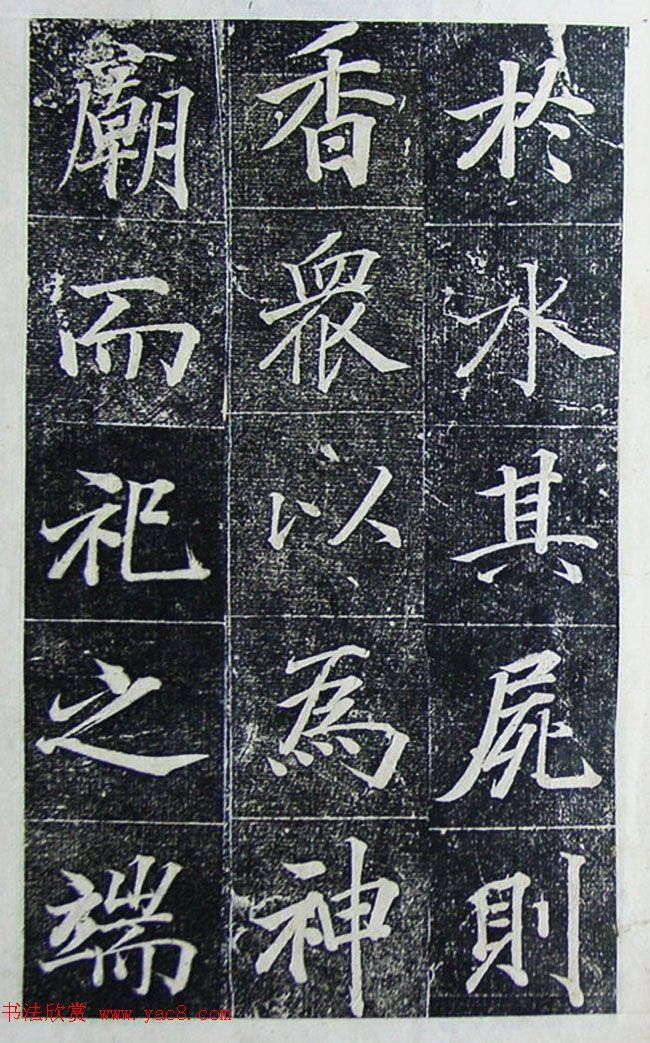 於水其屍則
香眾以為神
廟而祀之端
书法欣赏 www.yac8.com